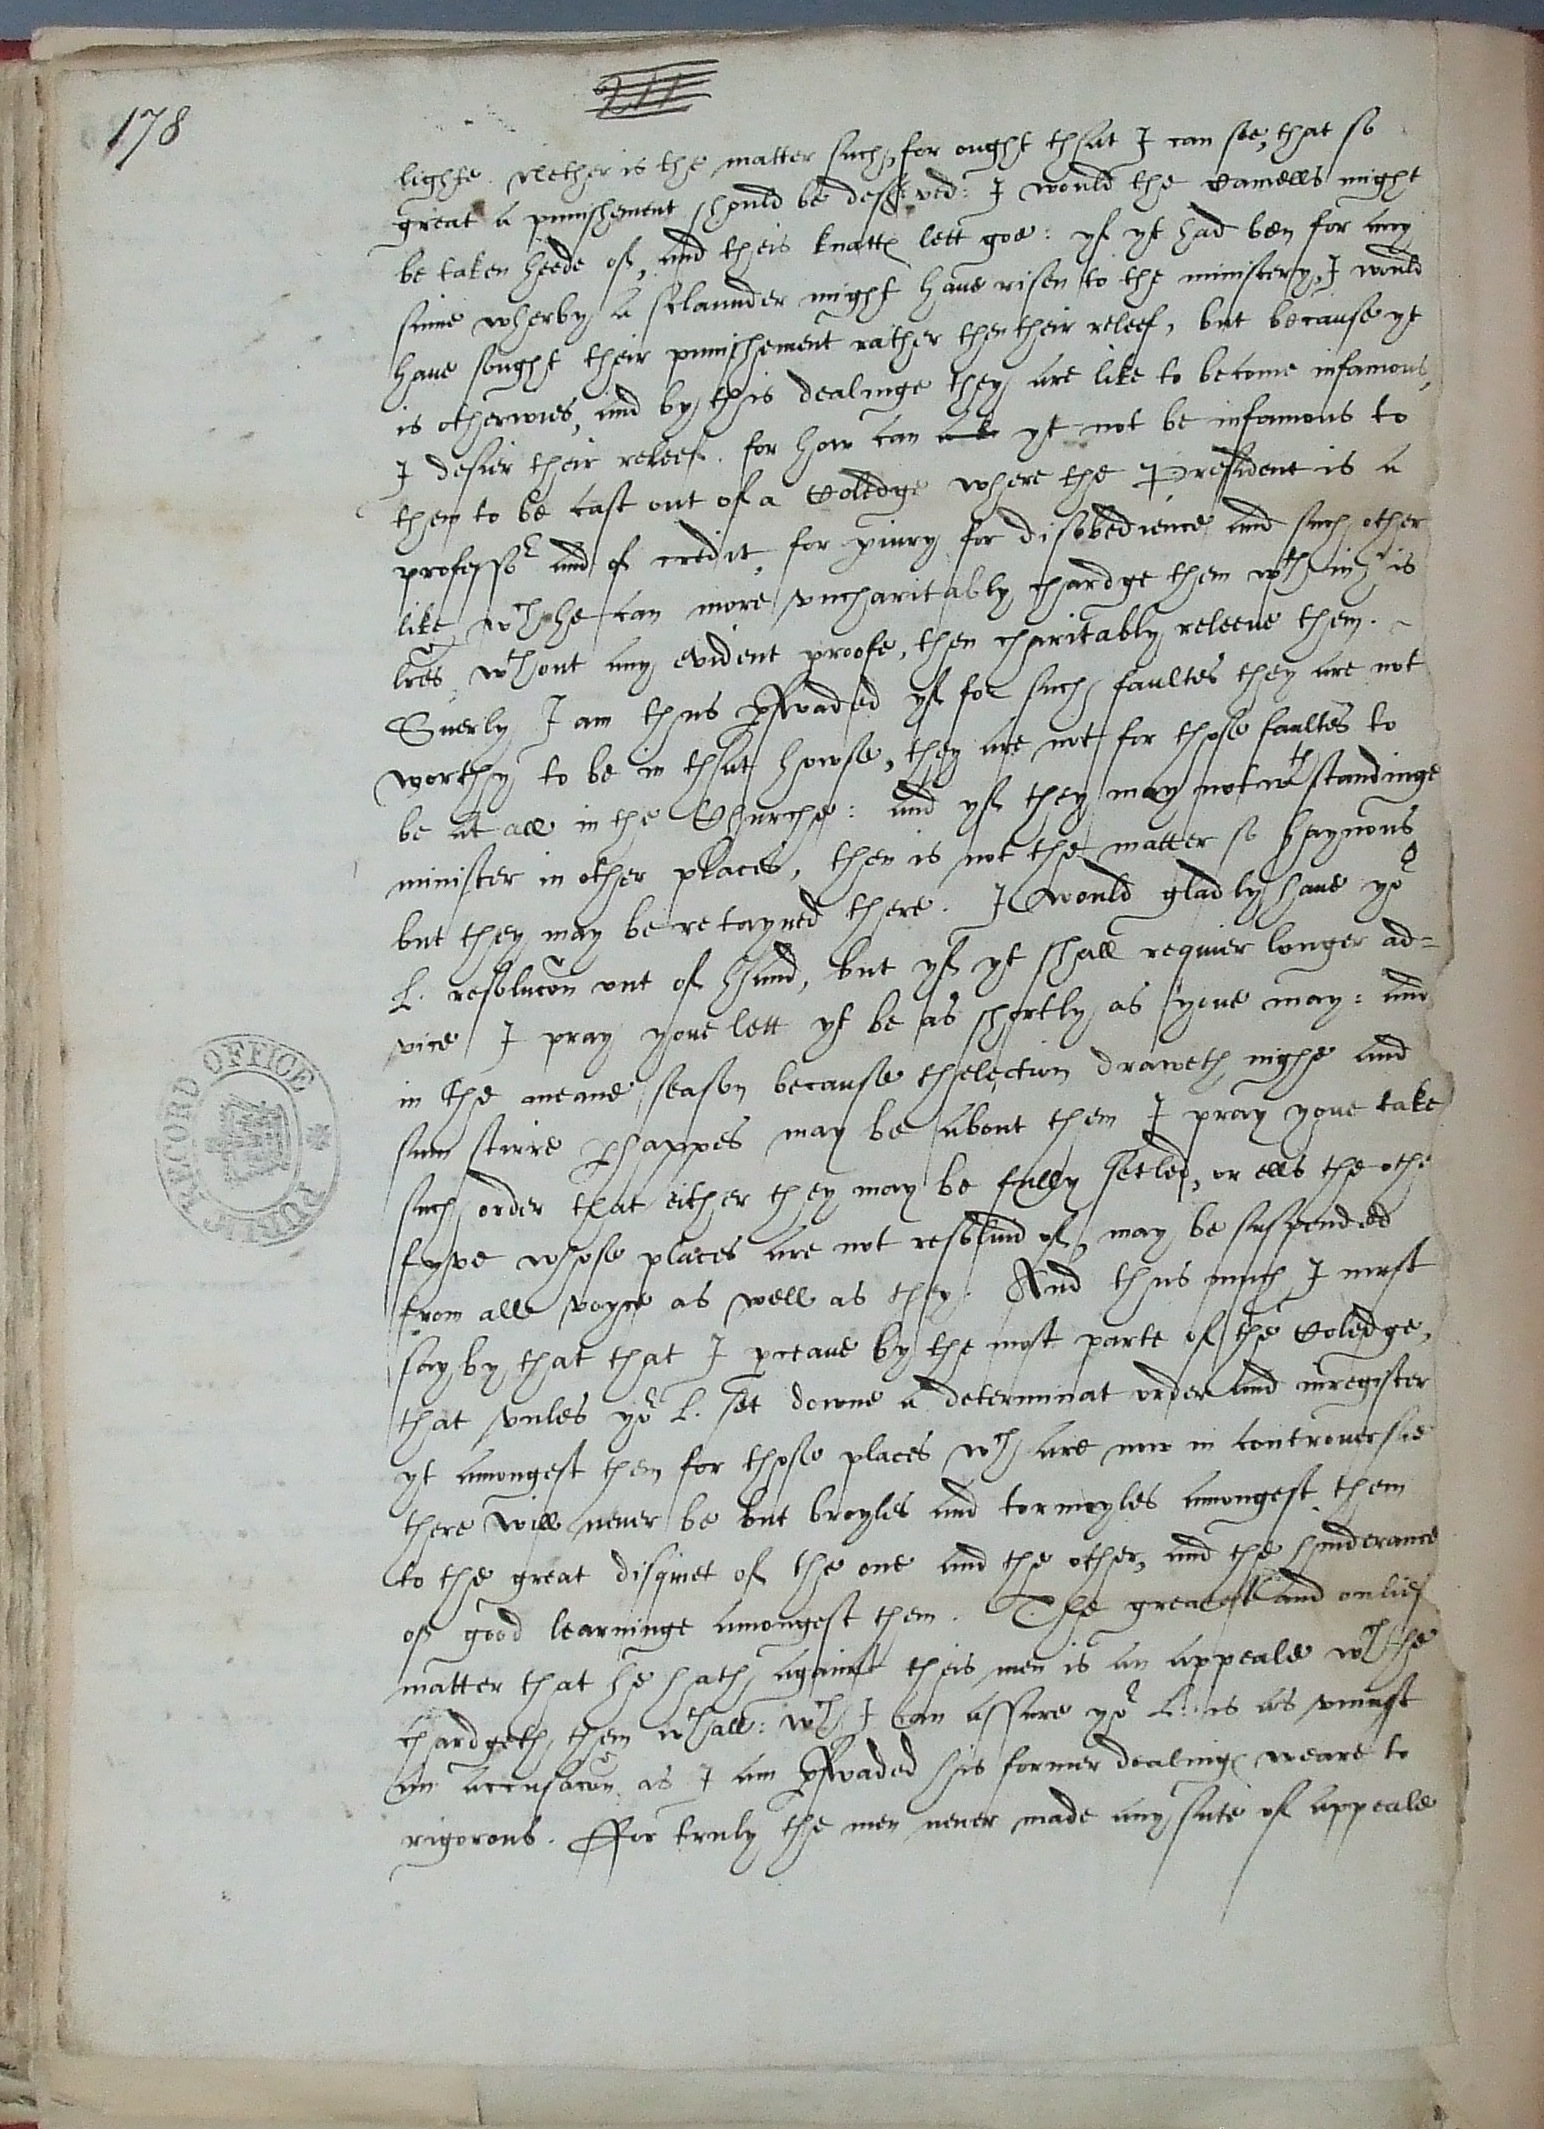 178
lighte. Nether is the matter such, for ought that I can see, that so
great a punishement should be deserved: I would the Camells might
be taken heede of, and theis knattes lett goe: yf yt had ben for any
sinne wherby a sclaunder might have risen to the ministery, I would
have sought their punishement rather then their releef, but because yt
is otherwies, and by this dealinge they are like to become infamous,
I desier their releef. for how can yt not be infamous to
them to be cast out of a Colledge where the President is a
professor and of credit, for piury for disobedience and such other
like wch he can more uncharitably chardge them wth in his
lres wthout any evident proofe, then charitably releeve them.
Suerly I am thus pswaded yf for such faultes they are not
worthy to be in that howse, they are not for those faultes to
be at all in the Churche: and yf they may notwthstandinge
minister in other places, then is not the matter so haynous
but they may be retayned there. I would gladly have yor
L. resolucon out of hand, but yf yt shall requier longer ad=
vice I pray youe lett yt be as shortly as youe may: and
in the meane season because thelection draweth nighe and
sum stirre phappes may be about them I pray youe take
such order that either they may be fully setled, or ells the othe
fyve whose places are not resolved of, may be suspended
from all voyce as well as they. And thus much I must
say by that that I pceave by the most parte of the Colledge,
that unles yor L. set downe a determinat order and inregister
yt amongest them for those places wch are now in controversie
there will never be but broyles and tormoyles amongest them
to the great disquiet of the one and the other, and the hinderance
of good learninge amongest them. The greatest and onlie
matter that he hath against theis men is an appeale wch he
chardgeth them wthall: wch I can assure yor L. is as uniust
an accusacon as I am pswaded his former dealinges weare to
rigorous. For truly the men never made any sute of appeale
PUBLIC RECORD OFFICE